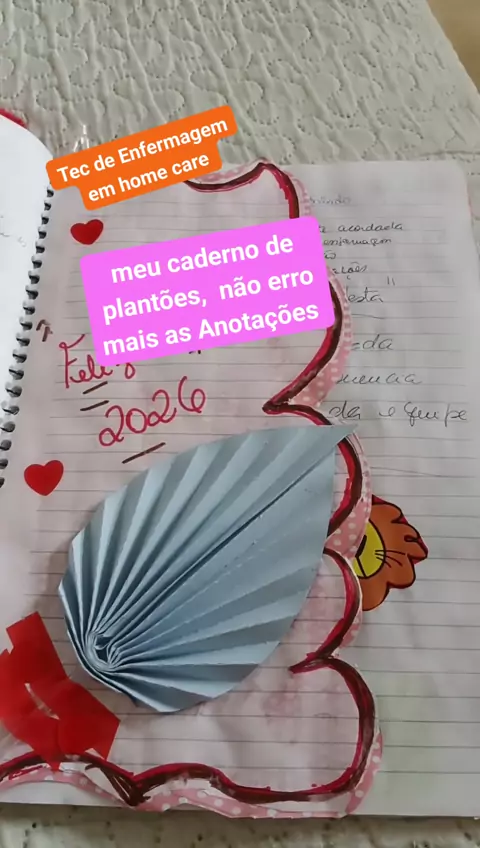 Tec de Enfermagem
em home care
meu caderno de
plantões, não erro
mais as Anotações
acordada
enfermagem
esta
Feliz
2026
da
da equipe